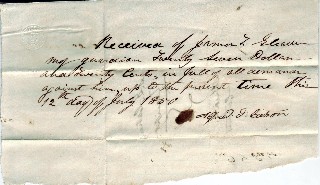 Received of James T. Gleaves
my guardian Twenty Seven Dollars
and twenty Cents in full of all demands
against him up to the present time This
12th day of July 1850
Alfred T.